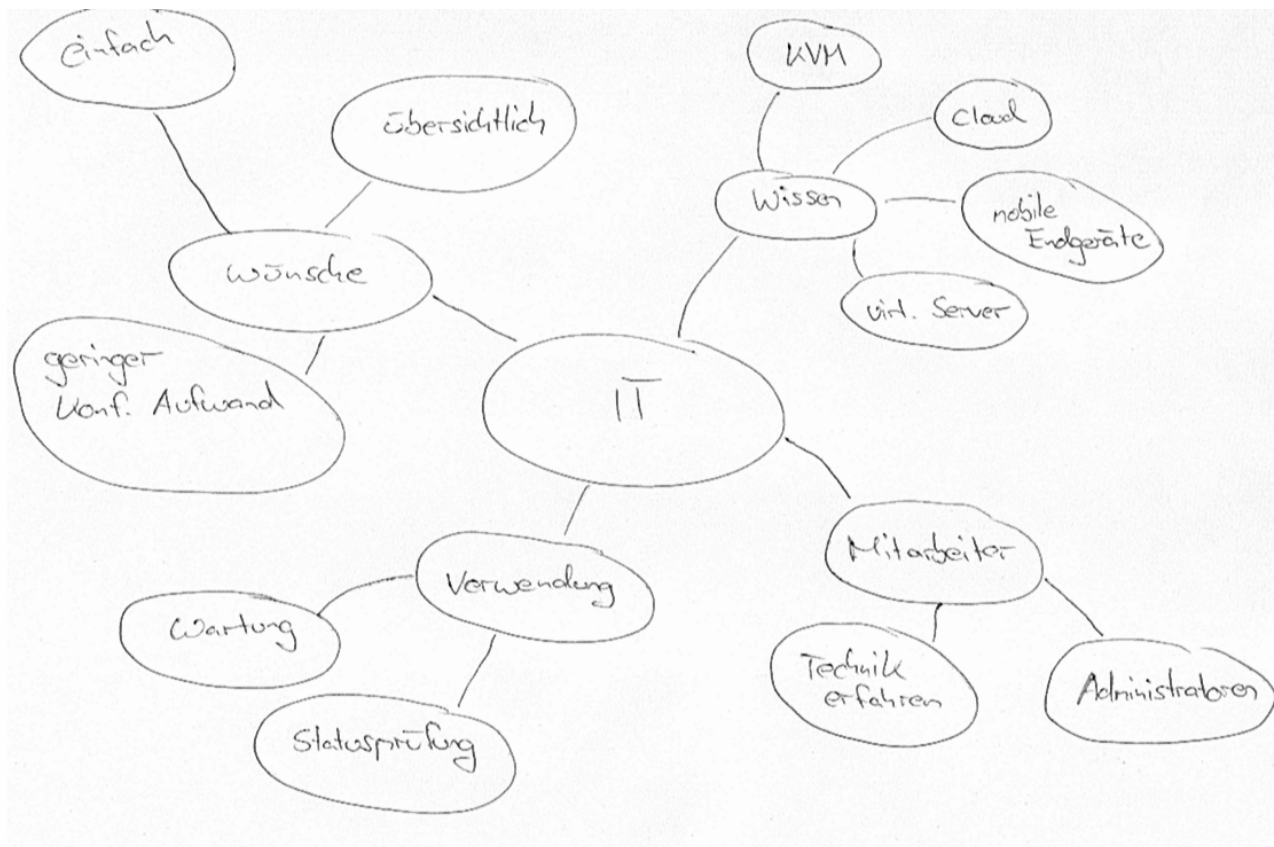 einfach
übersichtlich
Wünsche
geringer
Konf. Aufwand
KVM
Cloud
Wissen
mobile
Endgeräte
virt. Server
IT
Verwendung
Wartung
Statusprüfung
Mitarbeiter
Technik
erfahren
Administratoren